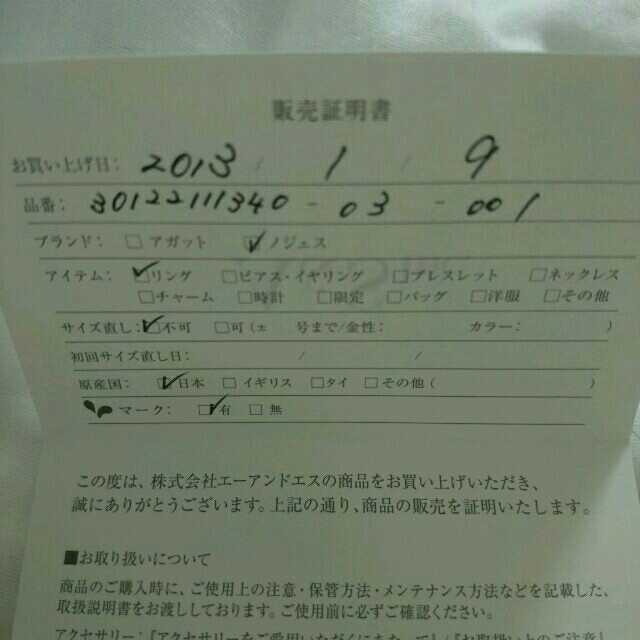 販売証明書
お買い上げ日: 2013 / 1 / 9
品番: 30122111340 - 03 - 001
ブランド: □ アガット ☑ ノジェス
アイテム: ☑リング □ピアス・イヤリング □ブレスレット □ネックレス
□チャーム □時計 □限定 □バッグ □洋服 □その他
サイズ直し: ☑不可 □可(± 号まで/金性: カラー: )
初回サイズ直し日: / /
原産国: ☑日本 □イギリス □タイ □その他( )
マーク: ☑有 □無
この度は、株式会社エーアンドエスの商品をお買い上げいただき、
誠にありがとうございます。上記の通り、商品の販売を証明いたします。
■お取り扱いについて
商品のご購入時に、ご使用上の注意・保管方法・メンテナンス方法などを記載した、
取扱説明書をお渡ししております。ご使用前に必ずご確認ください。
アクセサリー:『アクセサリーをご愛用いただくにあたって』『お取扱い上のご注意』